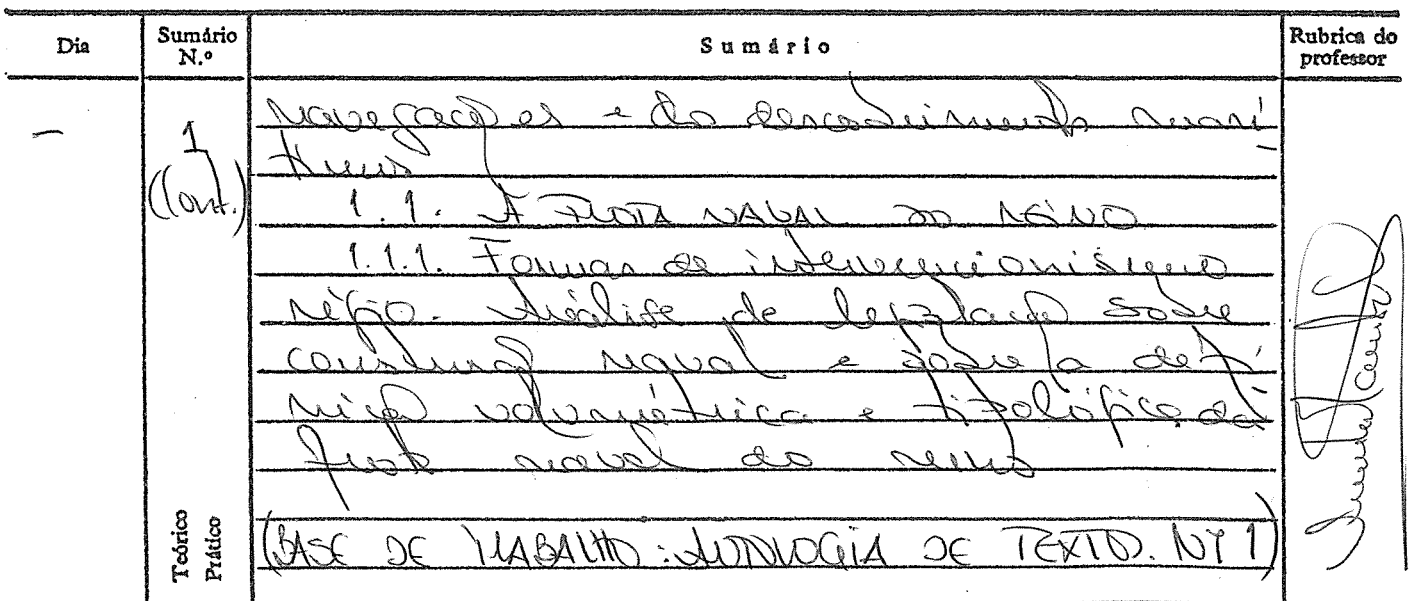 Dia Sumário N.º Sumário Rubrica do professor
– 1 (Cont.) navegações e do descobrimento marí-
timos
1.1. A FROTA NAVAL DO REINO
1.1.1. Formas de intervencionismo
régio. Análise de legislação sobre
construção naval e sobre a defi
nição volumétrica e tipológica da
frota naval do reino
Teórico Prático
(BASE DE TRABALHO: ANTOLOGIA DE TEXTOS. Nº 1)